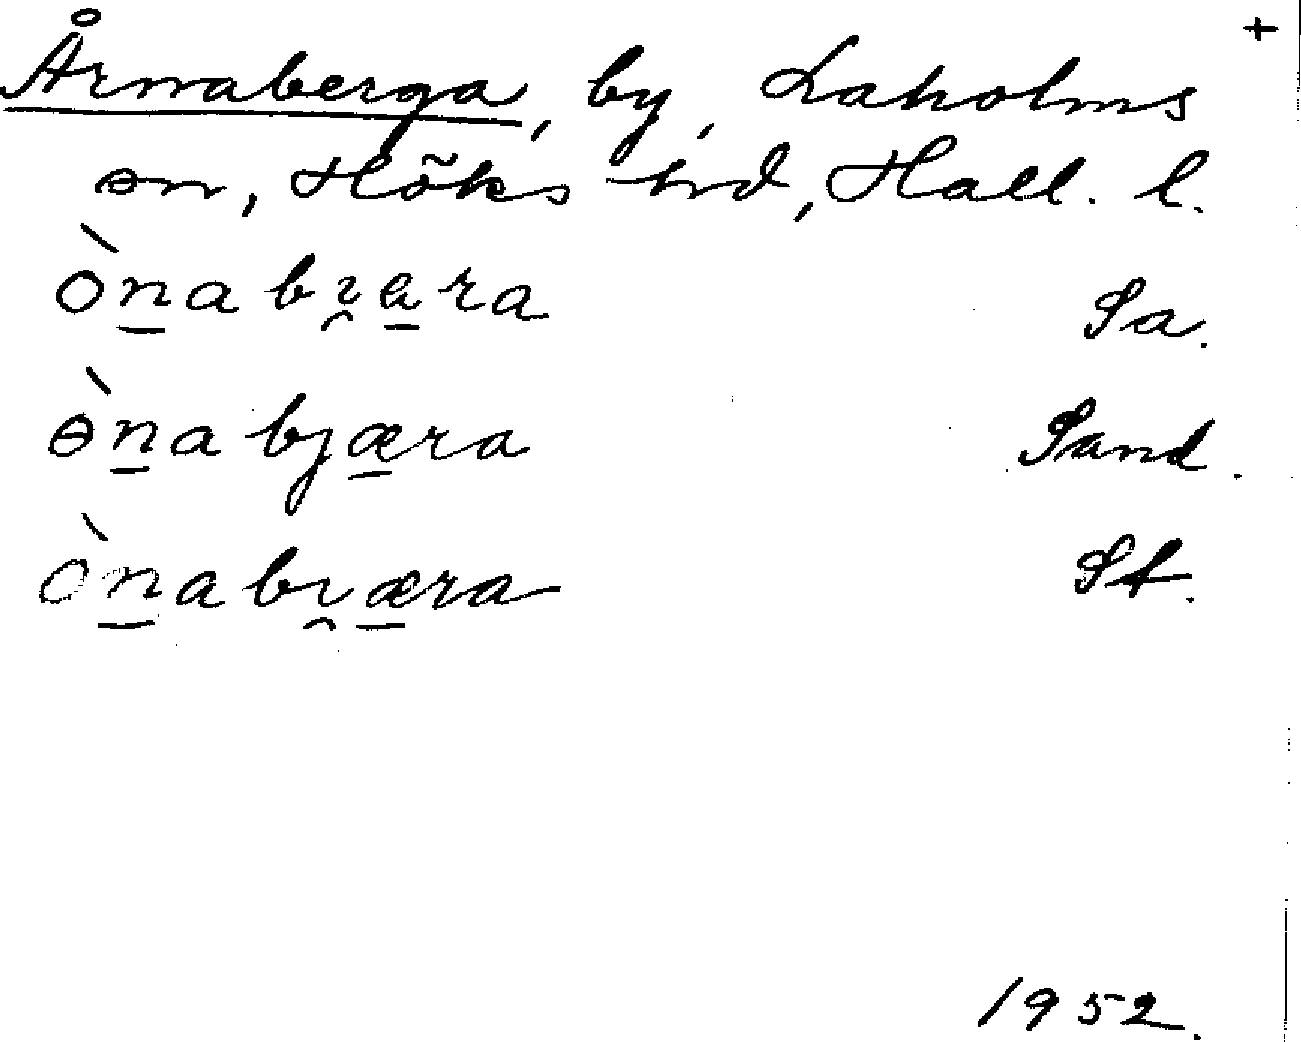 +
Årnaberga, by, Laholms
sn, Höks hd, Hall. l.
ò̱nabi̯a̱ra Sa.
ɵ̀ṉabjæ̱ra Sand.
òṉabi̯æ̱ra St.
1952.